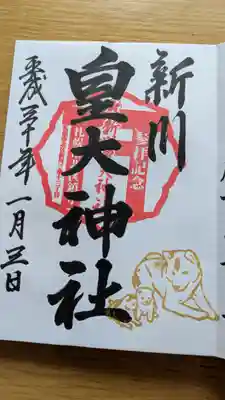 新川
皇大神社
参拝記念
平成三十年一月三日